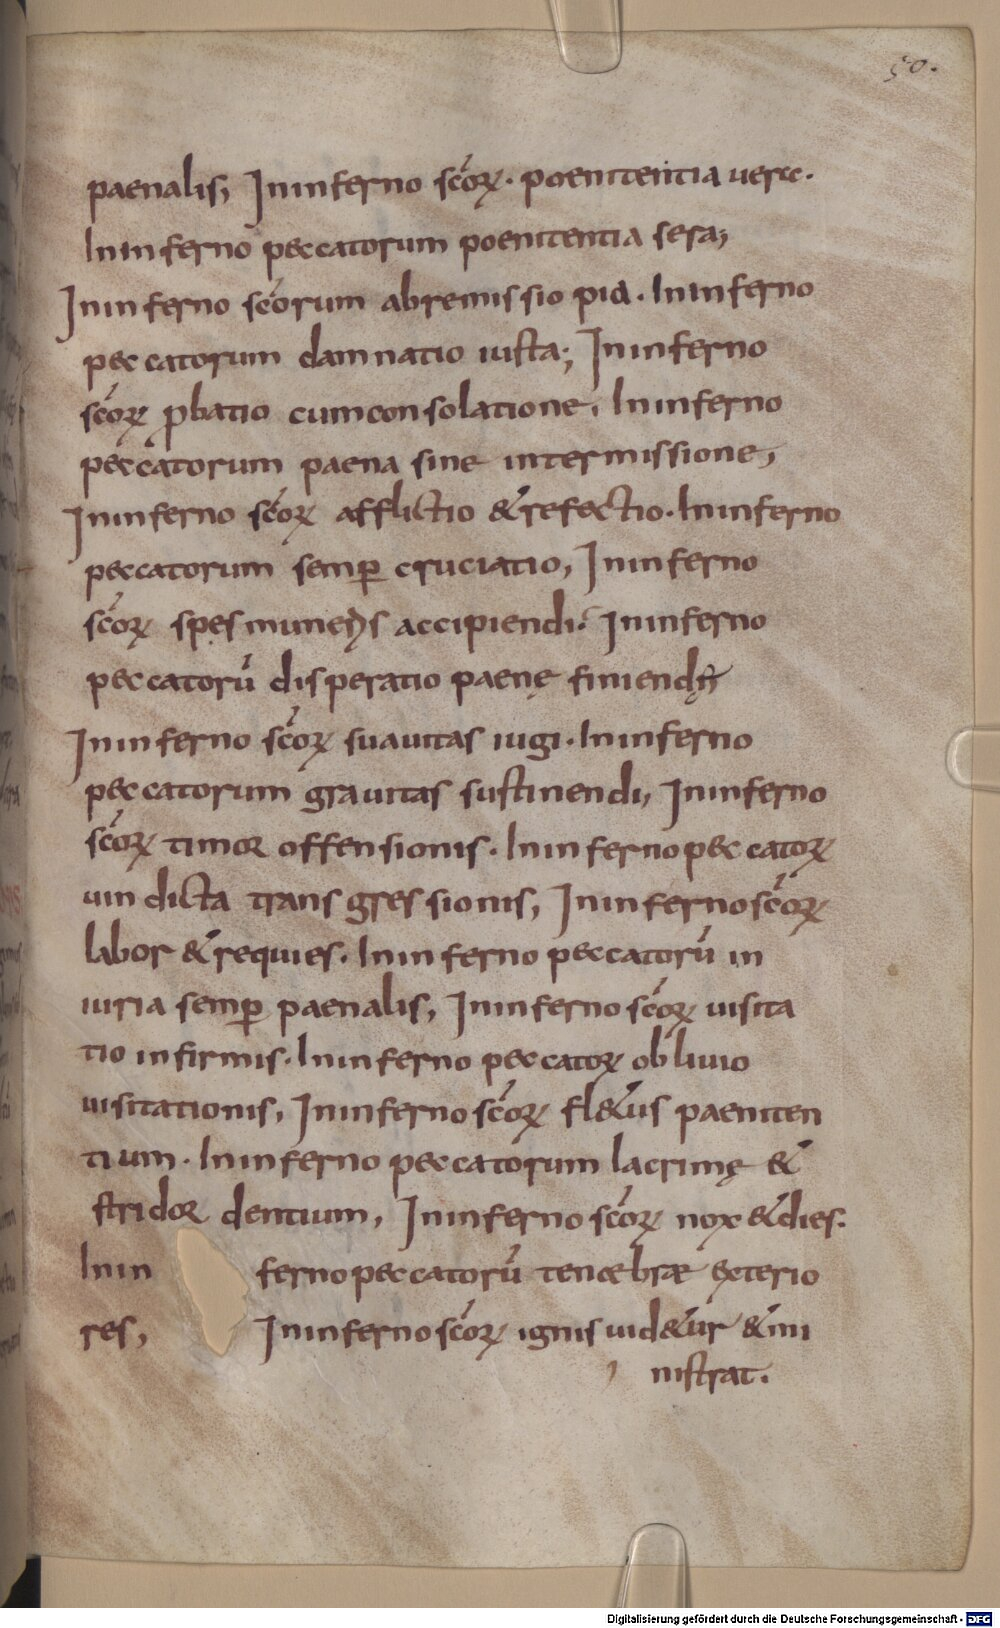 50.
paenalis, In inferno scōꝝ. poenitentia uere.
In inferno peccatorum poenitentia sera;
In inferno scōrum abremissio pia. In inferno
peccatorum damnatio iusta; In inferno
scōꝝ ꝓbatio cum consolatione. In inferno
peccatorum paena sine intermissione,
In inferno scōꝝ afflictio & refectio. In inferno
peccatorum semꝑ cruciatio, In inferno
scōꝝ spes muneris accipiendi. In inferno
peccatorū disperatio paenę finiendę
In inferno scōꝝ suauitas iugi. In inferno
peccatorum grauitas sustinendi, In inferno
scōꝝ timor offensionis. In inferno peccatoꝝ
uindicta transgressionis, In inferno scōꝝ
labor & requies. In inferno peccatorū in
iuria semꝑ paenalis, In inferno scōꝝ uisita
tio infirmis. In inferno peccatoꝝ obliuio
uisitationis, In inferno scōꝝ fl&us paeniten
tium. In inferno peccatorum lacrimę &
stridor dentium, In inferno scōꝝ nox & dies.
In in ferno peccatorū tenebræ exterio
res, In inferno scōꝝ ignis uid&ur & mi
nistrat.
Digitalisierung gefördert durch die Deutsche Forschungsgemeinschaft - DFG